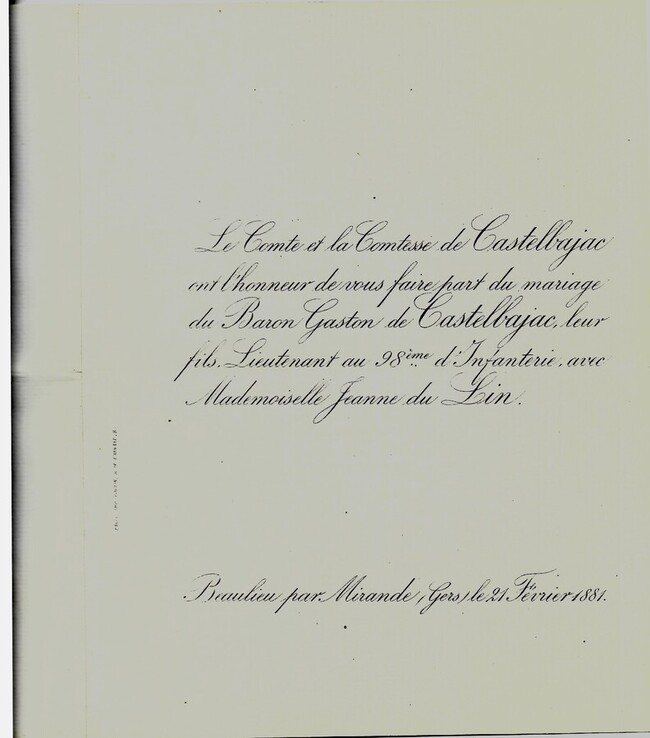 Le Comte et la Comtesse de Castelbajac
ont l'honneur de vous faire part du mariage
du Baron Gaston de Castelbajac, leur
fils, Lieutenant au 98ème d'Infanterie, avec
Mademoiselle Jeanne du Lin.
Beaulieu par Mirande, (Gers) le 21 Février 1881.